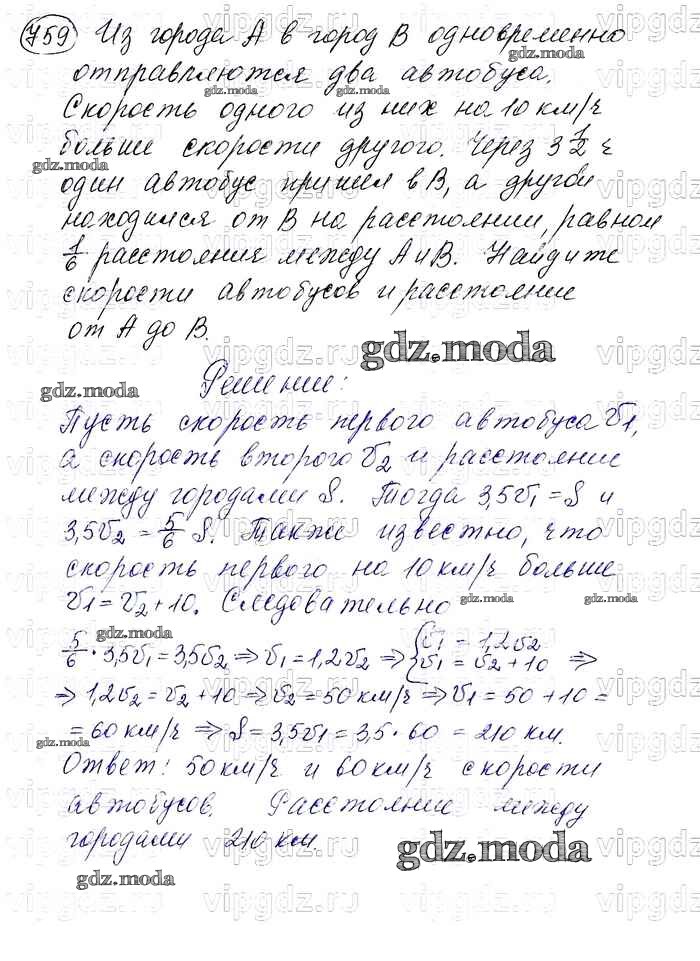 759 Из города А в город В одновременно
отправляются два автобуса.
Скорость одного из них на 10 км/ч
больше скорости другого. Через 3 1/2 ч
один автобус пришел в В, а другой
находился от В на расстоянии, равном
1/6 расстояние между А и В. Найдите
скорости автобусов и расстояние
от А до В.
Решение:
Пусть скорость первого автобуса v1,
а скорость второго v2 и расстояние
между городами S. Тогда 3,5v1 = S и
3,5v2 = 5/6 S. Также известно, что
скорость первого на 10 км/ч больше
v1 = v2 + 10. Следовательно
5/6 · 3,5v1 = 3,5v2 ⇒ v1 = 1,2v2 ⇒ { v1 = 1,2v2
v1 = v2 + 10 ⇒
⇒ 1,2v2 = v2 + 10 ⇒ v2 = 50 км/ч ⇒ v1 = 50 + 10 =
= 60 км/ч ⇒ S = 3,5v1 = 3,5 · 60 = 210 км.
Ответ: 50 км/ч и 60 км/ч скорости
автобусов. Расстояние между
городами 210 км.
gdz.moda
vipgdz.ru